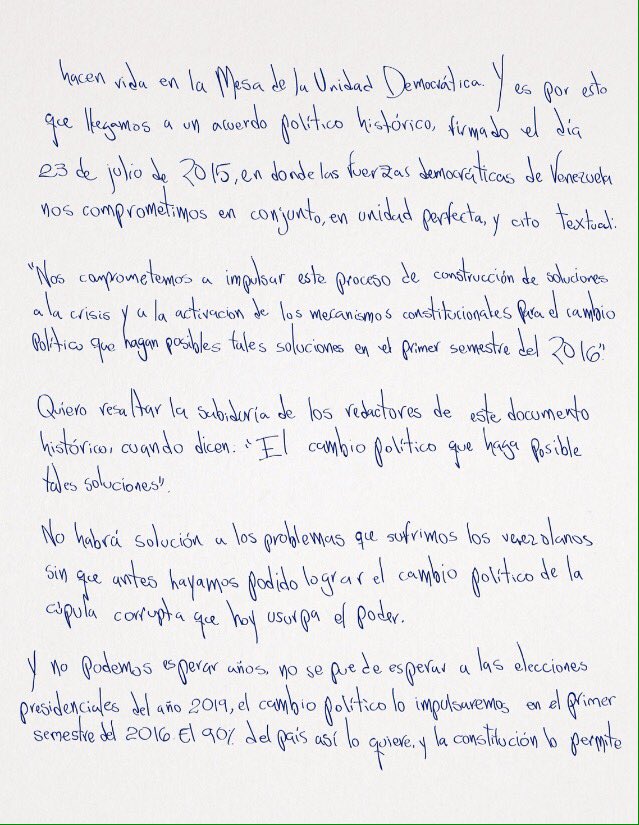 hacen vida en la Mesa de la Unidad Democrática. Y es por esto
que llegamos a un acuerdo político histórico, firmado el día
23 de julio de 2015, en donde las fuerzas democráticas de Venezuela
nos comprometimos en conjunto, en unidad perfecta, y cito textual:
"Nos comprometemos a impulsar este proceso de construcción de soluciones
a la crisis y a la activacion de los mecanismos constitucionales para el cambio
Político que hagan posibles tales soluciones en el primer semestre del 2016".
Quiero resaltar la sabiduría de los redactores de este documento
histórico, cuando dicen: "El cambio político que haga posible
tales soluciones".
No habrá solución a los problemas que sufrimos los venezolanos
sin que antes hayamos podido lograr el cambio político de la
cúpula corrupta que hoy usurpa el poder.
Y no podemos esperar años, no se puede esperar a las elecciones
presidenciales del año 2019, el cambio político lo impulsaremos en el primer
semestre del 2016. El 90% del país así lo quiere, y la constitución lo permite